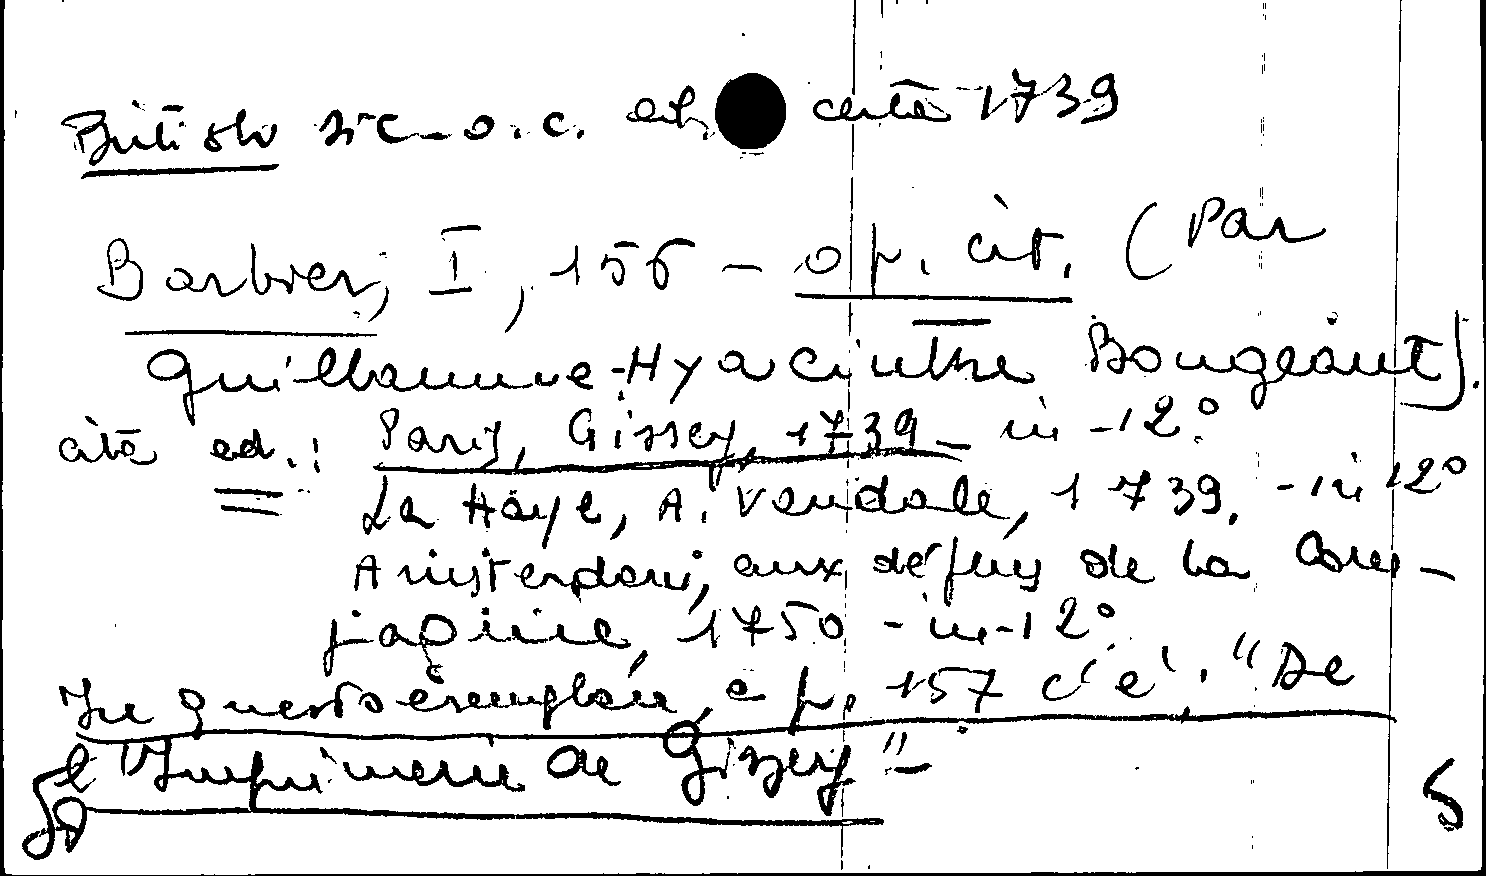 British sic - o.c. ed. cita 1739
Barbier, I, 156 - op. cit. (Par
Guillaume-Hyacinthe Bougeant).
cita ed.: Paris, Gissey, 1739 - in-12°
La Haye, A. Vandole, 1739. - in 12°
Amsterdam, aux dépens de la Com-
pagnie, 1750 - in-12°
In questo esemplare, a p. 157 c'è: "De
l'Imprimerie de Gissey" -
S